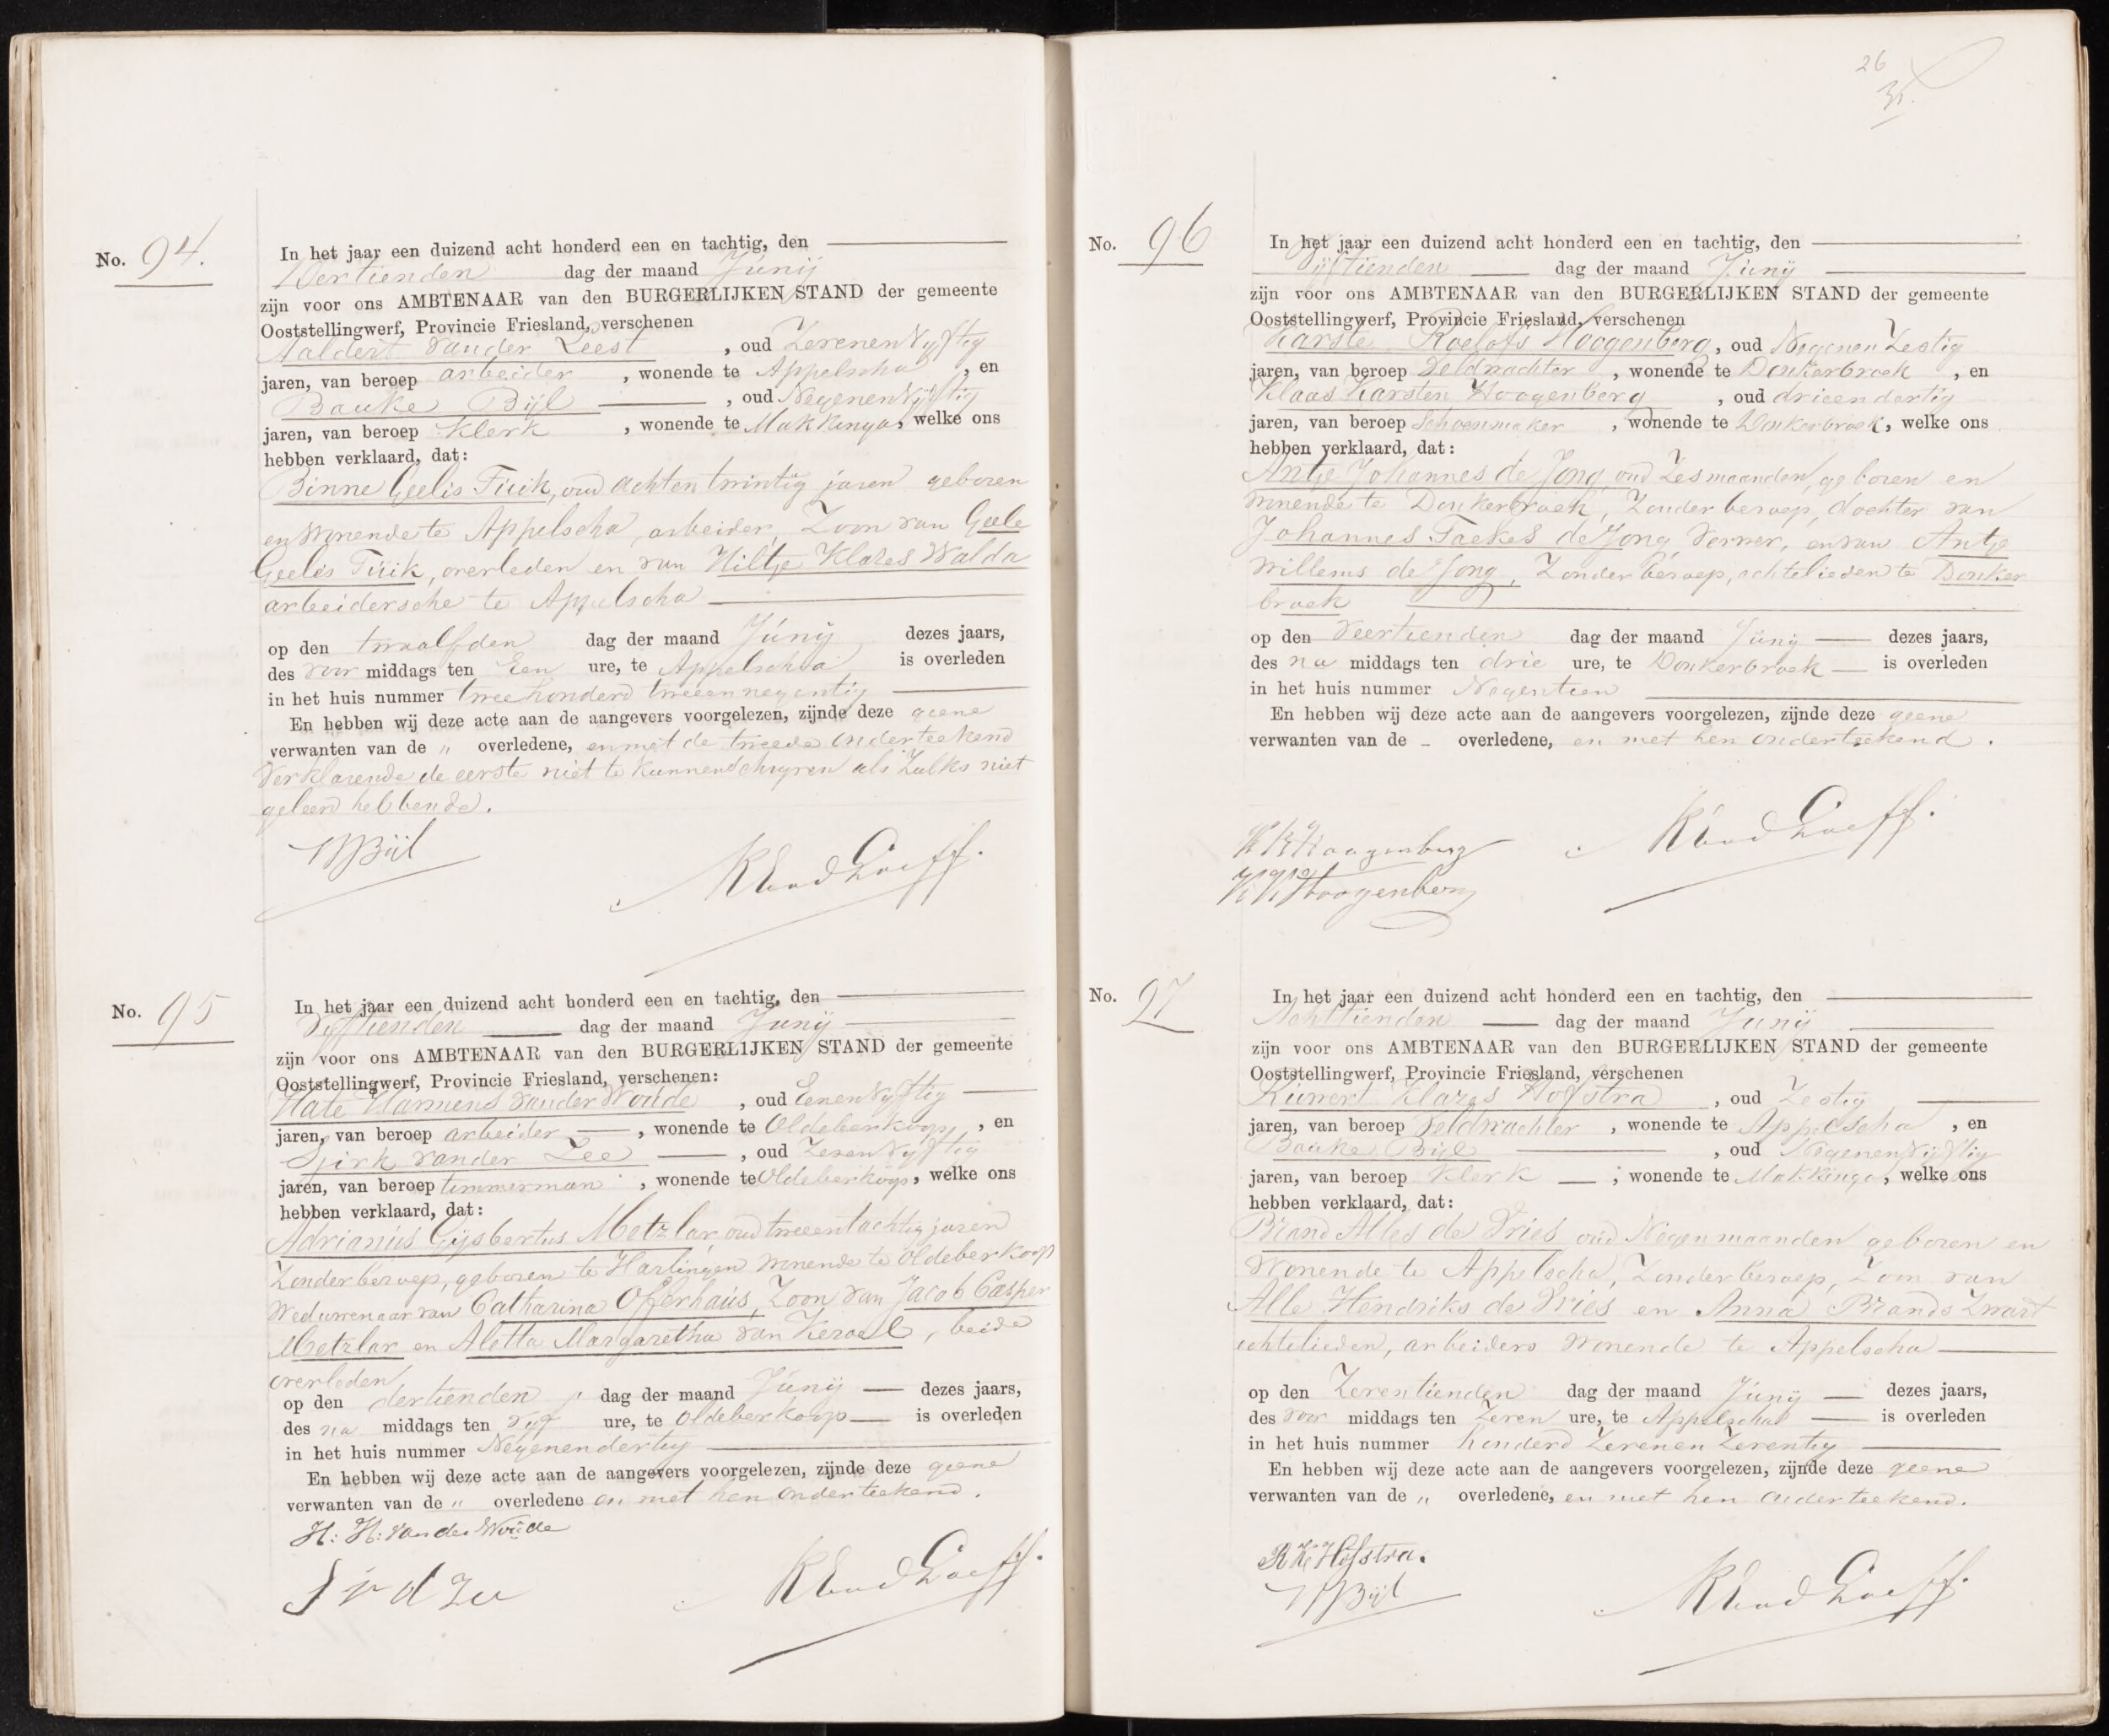 No. 94.
In het jaar een duizend acht honderd een en tachtig, den
Dertienden dag der maand Junij
zijn voor ons AMBTENAAR van den BURGERLIJKEN STAND der gemeente
Ooststellingwerf, Provincie Friesland, verschenen
Aaldert van der Leest, oud Zevenenvyftig
jaren, van beroep arbeider, wonende te Appelscha, en
Bauke Bijl, oud Negenenvyftig
jaren, van beroep Klerk, wonende te Makkinga, welke ons
hebben verklaard, dat:
Binne Geelis Fuik, oud achtentwintig jaren geboren
en wonende te Appelscha, arbeider, Zoon van Geele
Geeles Fuik, overleden en van Hiltje Klazes Walda
arbeidersche te Appelscha
op den twaalfden dag der maand Junij dezes jaars,
des voor middags ten Een ure, te Appelscha is overleden
in het huis nummer tweehonderd tweeennegentig
En hebben wij deze acte aan de aangevers voorgelezen, zijnde deze geene
verwanten van de " overledene, en met de tweede onderteekend
Verklarende de eerste niet te kunnen schryven als Zulks niet
geleerd hebbende.
B Bijl
No. 95
In het jaar een duizend acht honderd een en tachtig, den
Vyftienden dag der maand Junij
zijn voor ons AMBTENAAR van den BURGERLIJKEN STAND der gemeente
Ooststellingwerf, Provincie Friesland, verschenen:
Hate Harmens van der Woude, oud Eenenvyftig
jaren, van beroep arbeider, wonende te Oldeberkoop, en
Sjirk van der Zee, oud Zevenvyftig
jaren, van beroep timmerman, wonende te Oldeberkoop, welke ons
hebben verklaard, dat:
Adrianus Gijsbertus Metzlar, oud tweeentachtig jaren
Zonder beroep, geboren te Harlingen wonende te Oldeberkoop
Weduwenaar van Catharina Offerhaus, Zoon van Jacob Casper
Metzlar en Aletta Margaretha van Keraél, beide
overleden,
op den dertienden dag der maand Junij dezes jaars,
des na middags ten Vyf ure, te Oldeberkoop is overleden
in het huis nummer Negenendertig
En hebben wij deze acte aan de aangevers voorgelezen, zijnde deze geene
verwanten van de " overledene en met hen onderteekend.
H: H: van der Woude
S v d Zee
26
No. 96
In het jaar een duizend acht honderd een en tachtig, den
Vijftienden dag der maand Junij
zijn voor ons AMBTENAAR van den BURGERLIJKEN STAND der gemeente
Ooststellingwerf, Provincie Friesland, verschenen
Karste Roelofs Hoogenberg, oud Negenen Zestig
jaren, van beroep Veldwachter, wonende te Donkerbroek, en
Klaas Karsten Hoogenberg, oud drieendertig
jaren, van beroep Schoenmaker, wonende te Donkerbroek, welke ons
hebben verklaard, dat:
Antje Johannes de Jong, oud Zes maanden, geboren en
wonende te Donkerbroek, Zonder beroep, dochter van
Johannes Taekes de Jong, Verwer, en van Antje
Willems de Jong, Zonder beroep, echtelieden te Donker
broek
op den Veertienden dag der maand Junij dezes jaars,
des na middags ten drie ure, te Donkerbroek is overleden
in het huis nummer Negentien
En hebben wij deze acte aan de aangevers voorgelezen, zijnde deze geene
verwanten van de - overledene, en met hen onderteekend.
K R Hoogenberg
K K Hoogenberg
No. 97
In het jaar een duizend acht honderd een en tachtig, den
Achttienden dag der maand Junij
zijn voor ons AMBTENAAR van den BURGERLIJKEN STAND der gemeente
Ooststellingwerf, Provincie Friesland, verschenen
Ruwert Klazes Hofstra, oud Zestig
jaren, van beroep Veldwachter, wonende te Appelscha, en
Bauke Bijl, oud Negenenvijftig
jaren, van beroep Klerk, wonende te Makkinga, welke ons
hebben verklaard, dat:
Brand Alles de Vries oud Negen maanden geboren en
Wonende te Appelscha, Zonder beroep, Zoon van
Alle Hendriks de Vries en Anna Brands Zwart
echtelieden, arbeiders wonende te Appelscha
op den Zeventienden dag der maand Junij dezes jaars,
des voor middags ten Zeven ure, te Appelscha is overleden
in het huis nummer honderd Zevenen Zeventig
En hebben wij deze acte aan de aangevers voorgelezen, zijnde deze geene
verwanten van de " overledene, en met hen onderteekend.
R K Hofstra.
B Bijl